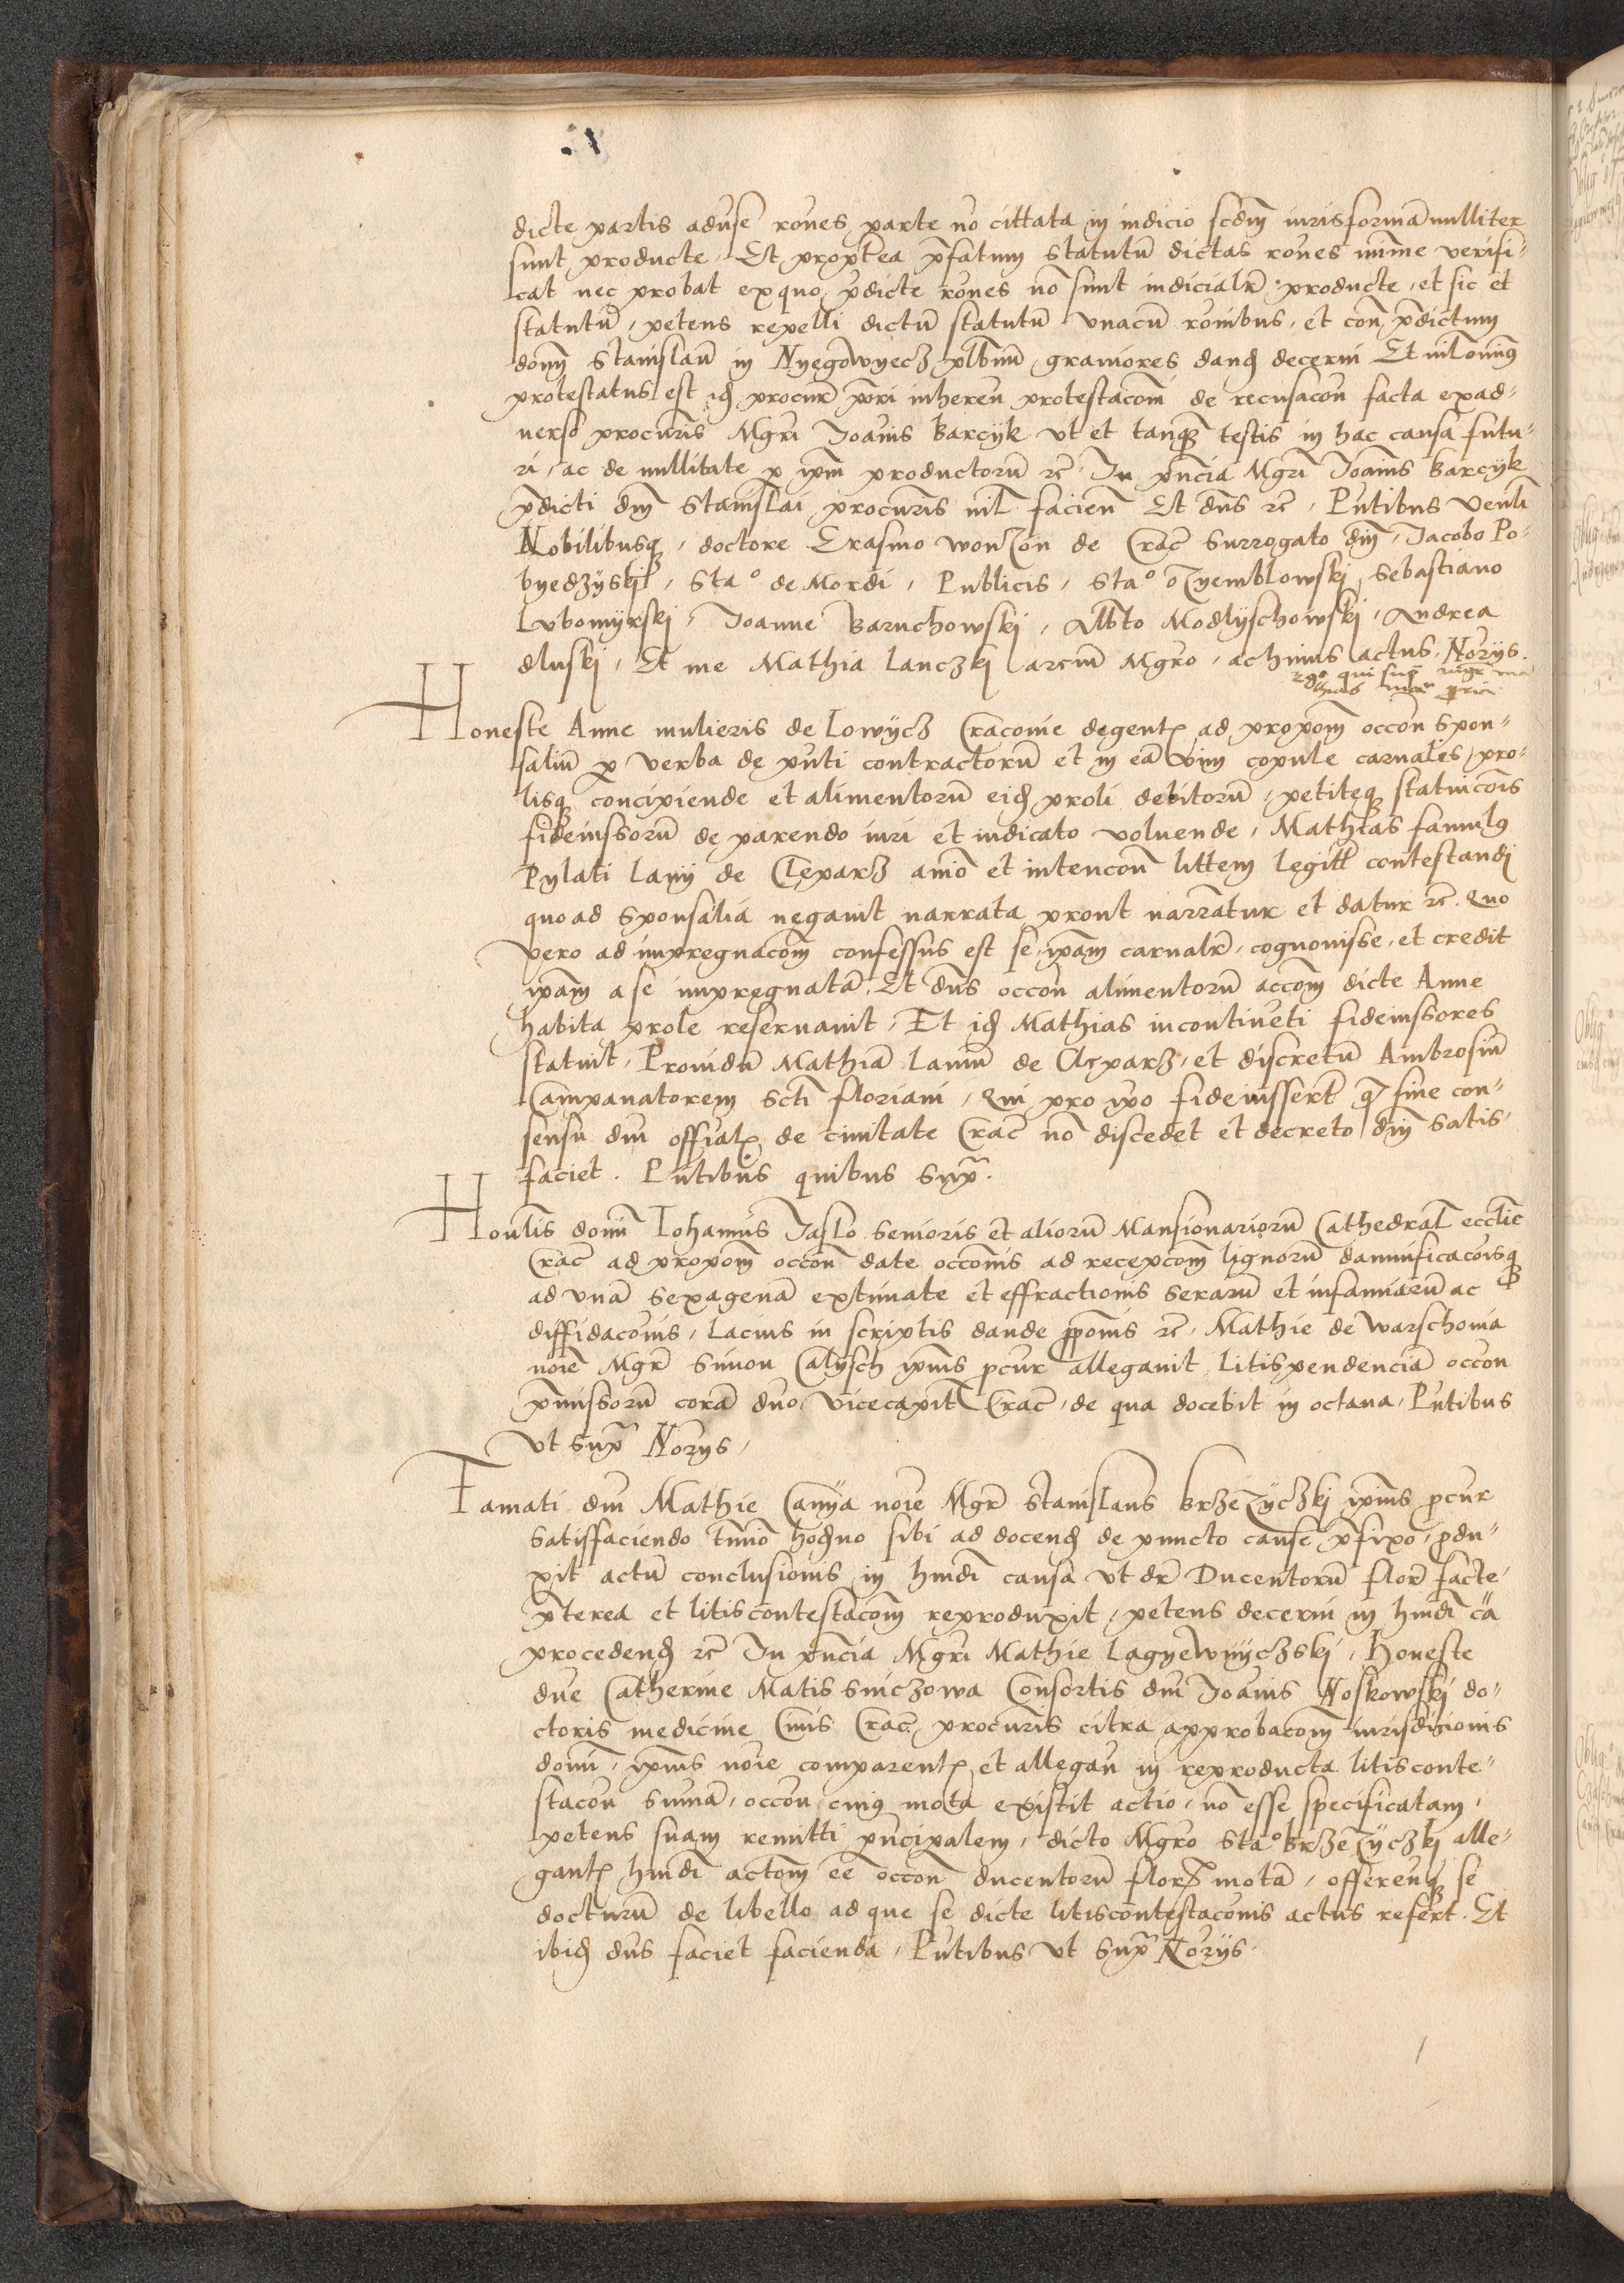 dicte partis aduse rones parte no cittata in iudicio scdm iuris formā nulliter
sunt producte. Et proptea pfatum statutū dictas rones mime verifi-
cat nec probat ex quo pdicte rones nō sunt iudicialr producte, et sic et
statutū, petens repelli dictū statutū vnacū ronibus, et con pdictum
dom̄ Stanislaū in Nyegowyecz plbnū grauiores dand decerni Et nilomin9
protestatus est id procur pori inheren protestacom̄ de recusacon facta exad-
uerso procuris Mgri Joanis Barcyk vt et tanq testis in hac causa futu-
ri, ac de nullitate p ipm productorū rc. In pncia Mgri Joanis Barcyk
pdicti dm̄ Stanislai procuris nil facien Et dns rc. Pntibus venli
Nobilibusq, doctore Erasmo wonzon de Crac surrogato dm̄, Jacobo Po-
byedzyskj, Sta° de Mordi, Publicis, Sta° Ozyemblowskj, Sebastiano
Lubomyrskj, Joanne Baruchowskj, Albto Modlyschowskj, Andrea
dluskj, Et me Mathia Lanczkj arciū Mgro, ac huius actus, Norijs.
qui sup mgr ma
thias man ppria
Honeste Anne mulieris de Lowycz Cracouie degent ad propom̄ occon spon-
saliū p verba de pnti contractorū et in eā vim copule carnales, pro-
lisq concipiende et alimentorū eid proli debitorū, petiteq statuicois
fideiussorū de parendo iuri et iudicato voluende, Mathias famul9
Pylati Lanij de Clepardz amo et intencon littem legitt contestandi
quo ad sponsalia negauit narrata prout narratur et datur rc. Quo
vero ad impregnacom̄ confessus est se ipam carnalr cognouisse, et credit
ipam a se impregnatā. Et dns occon alimentorū accom̄ dicte Anne
habita prole reseruauit, Et id Mathias incontineti fideiussores
statuit, Prouidū Mathiā Laniū de Clepardz, et discretū Ambrosiū
Campanatorem Scti Floriani, Qui pro ipo fideiussert q sine con-
sensu dm̄ offial de ciuitate Crac no discedet et decreto dm̄ satis-
faciet. Pntibus quibus supa.
Honlis dom̄ Johannis Jaslo senioris et aliorū Mansionariorū Cathedral ecclie
Crac ad propom̄ occon date occonis ad recepcom̄ lignorū damnificacoisq
ad vnā sexagenā extimate et effractionis serarū et infamiarū ac
diffidaconis, Lacius in scriptis dande pponis rc, Mathie de Warschouia
noie Mgr Simon Calysch ipius pcur allegauit litispendenciā occon
pmissorū corā dno Vicecapit Crac, de qua docebit in octaua, Pntibus
vt supa Norijs,
Famati dm̄ Mathie Camya noie Mgr Stanislaus Brzezyczkj ipius pcur
satisfaciendo tmio hodno sibi ad docend de puncto cause pfixo, pdu-
xit actū conclusionis in hmdi causa vt dr Ducentorū flor facte,
pterea et litiscontestacom̄ reproduxit, petens decerni in hmdi cā
procedend rc In pncia Mgri Mathie Lagyewnyczskj, Honeste
dne Catherine Matis Sinczowa Consortis dm̄ Joanis Noskowskj do-
ctoris medicine Ciuis Crac procuris citra approbacom̄ iurisdicionis
dom̄, ipius noie comparent et allegan in reproducta litisconte-
stacon sumā, occon cuius mota existit actio, no esse specificatam,
petens suam remitti pncipalem, dicto Mgro Sta° Brzezyczkj alle-
gant hmdi actom̄ ee occon ducentorū flor motā, offerenq se
docturū de libello ad que se dicte litiscontestaconis actus refert. Et
ibid dns faciet facienda, Pntibus vt supa Norijs.